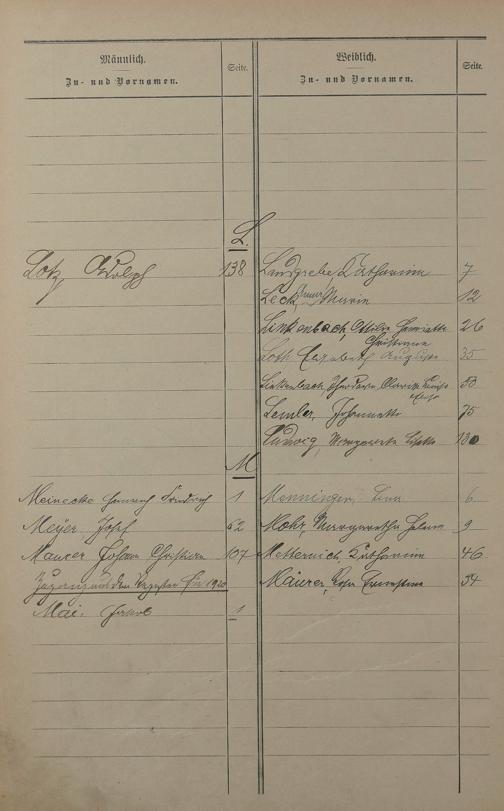 Männlich.
Zu- und Vornamen.
Seite.
Weiblich.
Zu- und Vornamen.
Seite.
L.
Lotz, Adolph 138
Landgrebe, Katharina 7
Leck, Anna Maria 12
Linkenbach, Ottilie Henriette 26
Christiane
Loth Elisabeth Auguste 35
Linkenbach, 50
Lemler, Johannette 75
Ludwig, Margarete 180
M
Meinecke Heinrich Friedrich 1
Menninger, Lina 6
Meyer Josef 62
Mohr, Margaretha Helene 9
Maurer Johann Christian 107
Metternich, Katharina 46
1920
Mäurer, Ernestine 54
Mai, Jakob 1